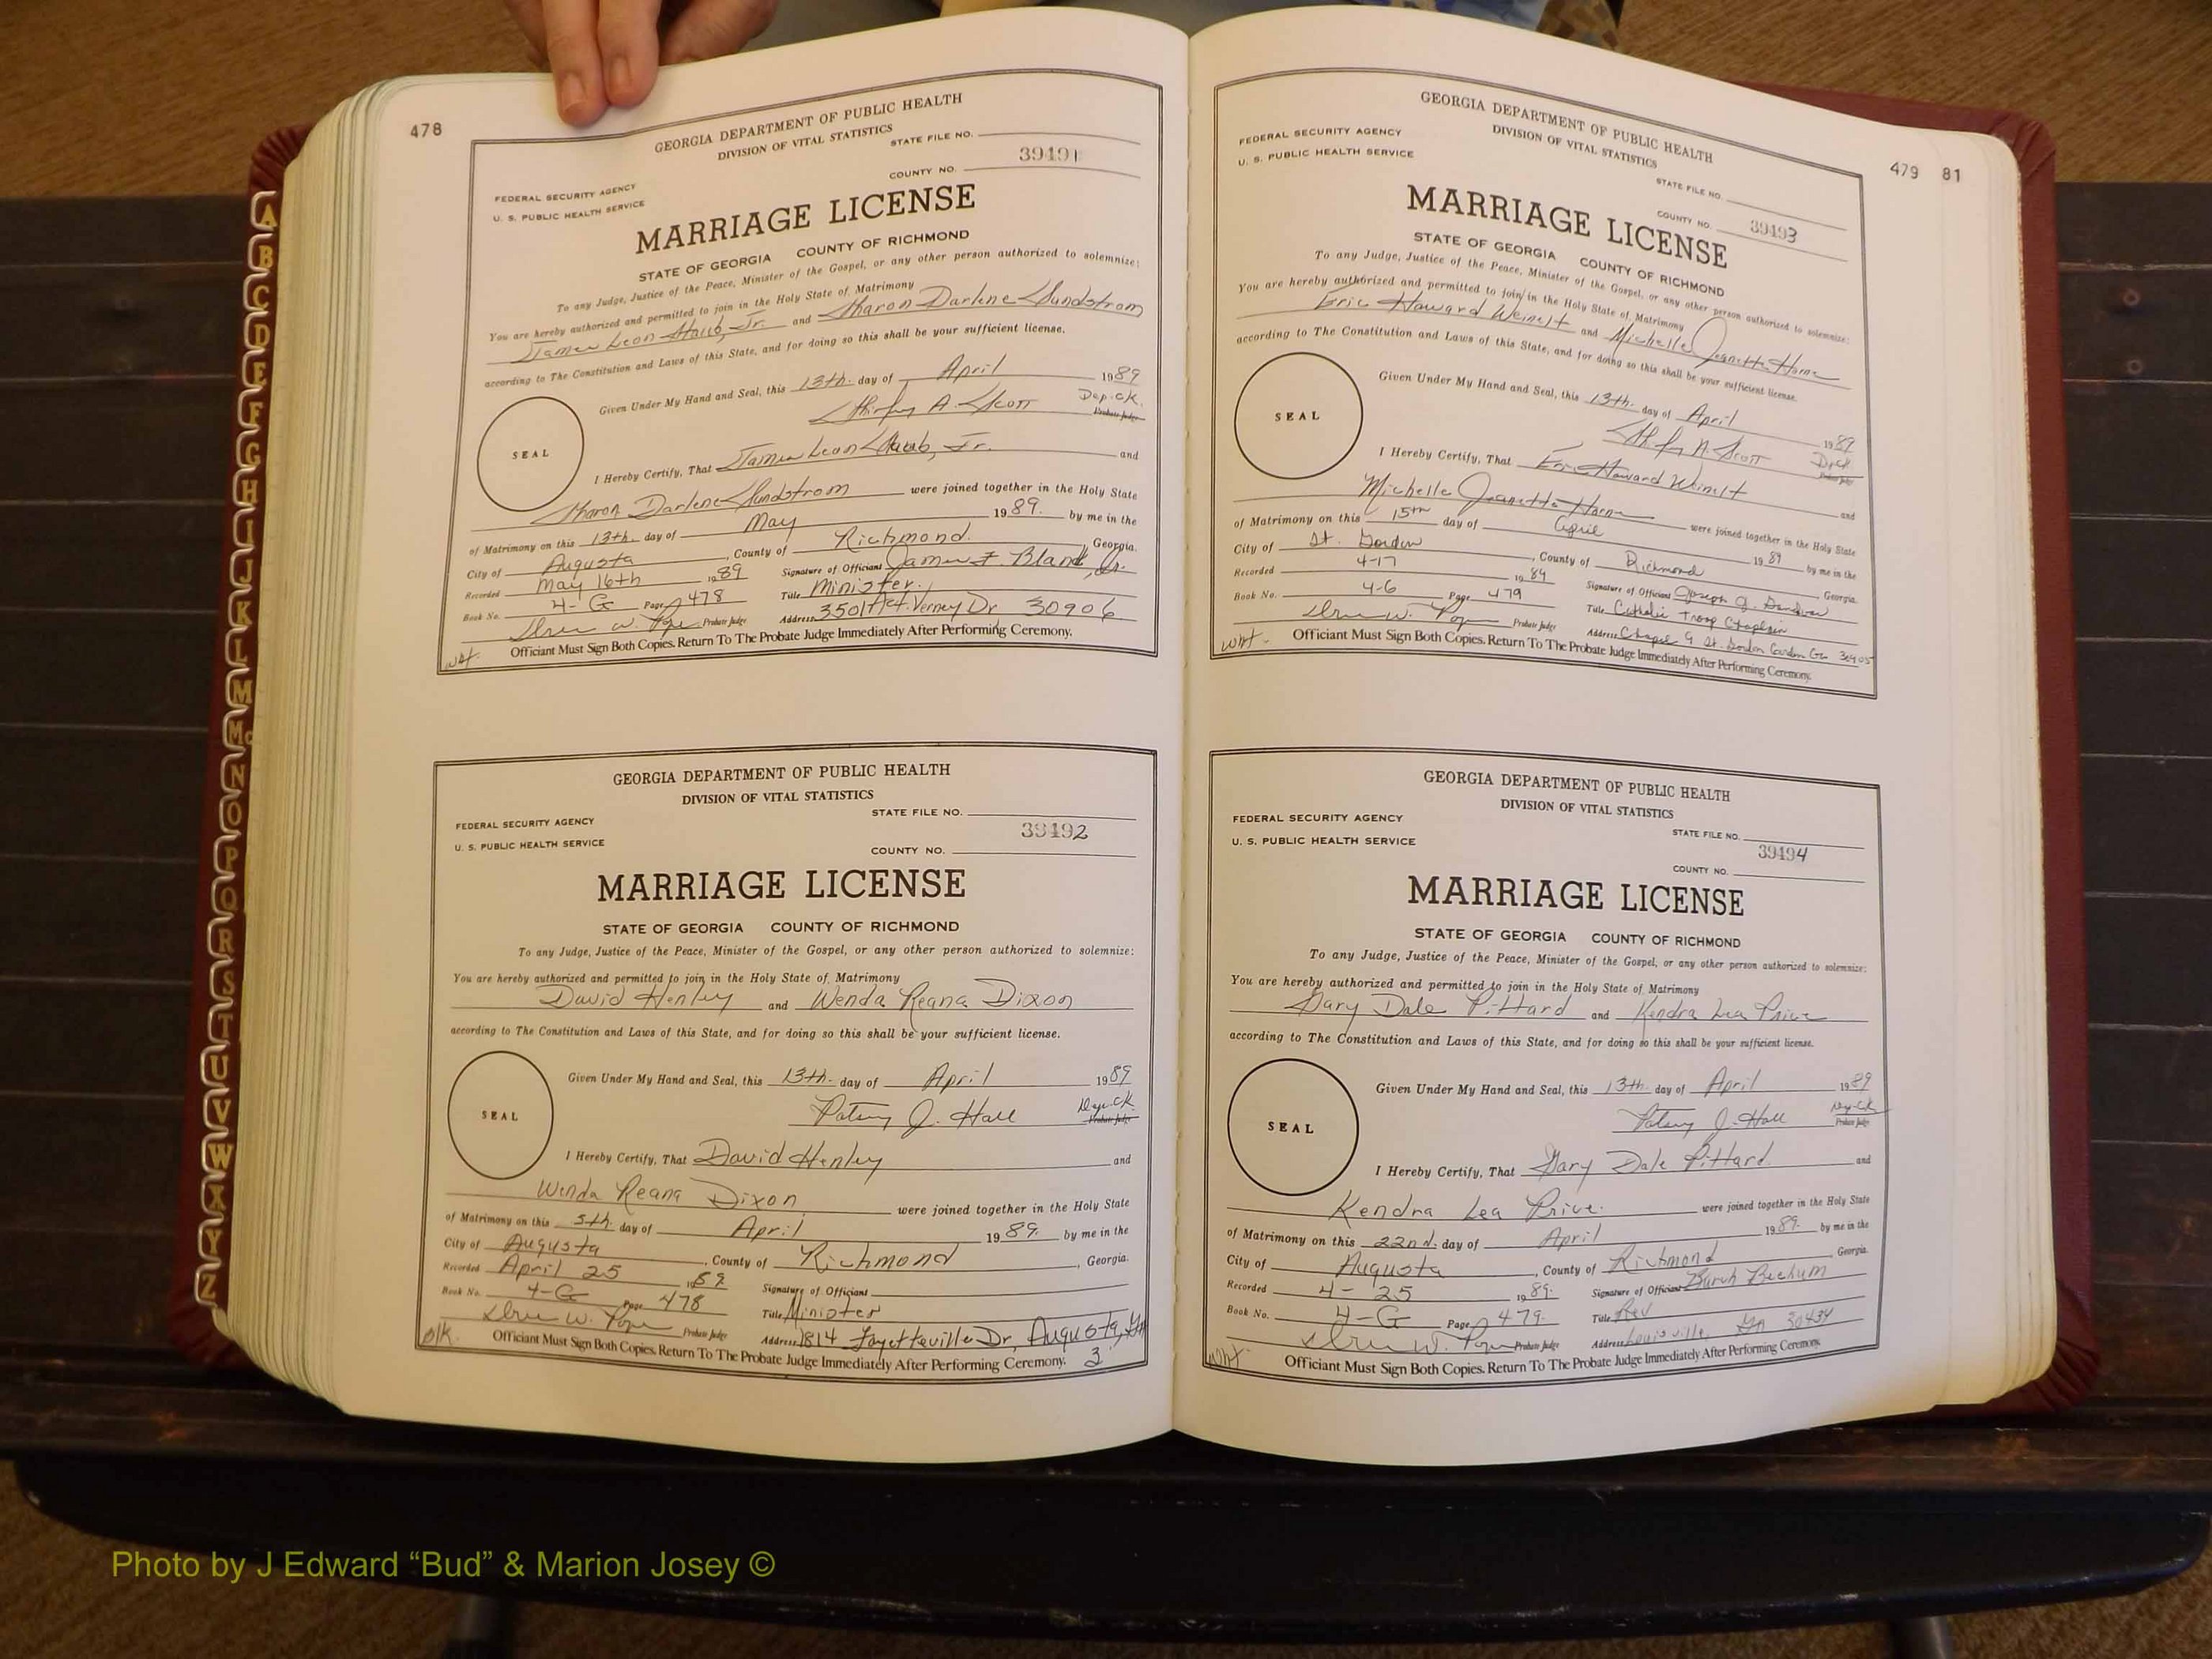 478
GEORGIA DEPARTMENT OF PUBLIC HEALTH
DIVISION OF VITAL STATISTICS
STATE FILE NO.
FEDERAL SECURITY AGENCY
U. S. PUBLIC HEALTH SERVICE
39491
COUNTY NO.
MARRIAGE LICENSE
STATE OF GEORGIA COUNTY OF RICHMOND
To any Judge, Justice of the Peace, Minister of the Gospel, or any other person authorized to solemnize:
You are hereby authorized and permitted to join in the Holy State of Matrimony
James Leon Staub, Jr. and Sharon Darlene Sundstrom
according to The Constitution and Laws of this State, and for doing so this shall be your sufficient license.
Given Under My Hand and Seal, this 13th. day of April 1989
Shirley A. Scott Dep. Ck.
Probate Judge
SEAL
I Hereby Certify, That James Leon Staub, Jr. and
Sharon Darlene Sundstrom were joined together in the Holy State
of Matrimony on this 13th. day of May 1989. by me in the
City of Augusta, County of Richmond. Georgia.
Recorded May 16th 1989 Signature of Officiant James F. Bland, Jr.
Book No. 4-G Page 478 Title Minister.
Probate Judge Address 3501 Verney Dr 30906
Officiant Must Sign Both Copies. Return To The Probate Judge Immediately After Performing Ceremony.
GEORGIA DEPARTMENT OF PUBLIC HEALTH
DIVISION OF VITAL STATISTICS
STATE FILE NO.
FEDERAL SECURITY AGENCY
U. S. PUBLIC HEALTH SERVICE
39492
COUNTY NO.
MARRIAGE LICENSE
STATE OF GEORGIA COUNTY OF RICHMOND
To any Judge, Justice of the Peace, Minister of the Gospel, or any other person authorized to solemnize:
You are hereby authorized and permitted to join in the Holy State of Matrimony
David Henley and Wenda Reana Dixon
according to The Constitution and Laws of this State, and for doing so this shall be your sufficient license.
Given Under My Hand and Seal, this 13th. day of April 1989
J. Hall Dep. Ck.
Probate Judge
SEAL
I Hereby Certify, That David Henley and
Wenda Reana Dixon were joined together in the Holy State
of Matrimony on this 5th. day of April 1989. by me in the
City of Augusta, County of Richmond, Georgia.
Recorded April 25 1989 Signature of Officiant
Book No. 4-G Page 478 Title Minister
Probate Judge Address 1814 Fayetteville Dr, Augusta, Ga
Blk. Officiant Must Sign Both Copies. Return To The Probate Judge Immediately After Performing Ceremony. 3
479 81
GEORGIA DEPARTMENT OF PUBLIC HEALTH
DIVISION OF VITAL STATISTICS
FEDERAL SECURITY AGENCY
U. S. PUBLIC HEALTH SERVICE
STATE FILE NO.
COUNTY NO. 39493
MARRIAGE LICENSE
STATE OF GEORGIA COUNTY OF RICHMOND
To any Judge, Justice of the Peace, Minister of the Gospel, or any other person authorized to solemnize:
You are hereby authorized and permitted to join in the Holy State of Matrimony
Eric Howard Weinelt and Michelle Jeanette Horne
according to The Constitution and Laws of this State, and for doing so this shall be your sufficient license.
Given Under My Hand and Seal, this 13th. day of April 1989
Shirley A. Scott
Probate Judge
SEAL
I Hereby Certify, That Eric Howard Weinelt and
Michelle Jeanette Horne were joined together in the Holy State
of Matrimony on this 15th day of April 1989 by me in the
City of Ft. Gordon, County of Richmond Georgia.
Recorded 4-17 1989 Signature of Officiant Joseph
Book No. 4-G Page 479 Title Catholic Troop Chaplain
Probate Judge Address Chapel 9 Ft. Gordon Ga 30905
Officiant Must Sign Both Copies. Return To The Probate Judge Immediately After Performing Ceremony.
GEORGIA DEPARTMENT OF PUBLIC HEALTH
DIVISION OF VITAL STATISTICS
FEDERAL SECURITY AGENCY
U. S. PUBLIC HEALTH SERVICE
STATE FILE NO.
39494
COUNTY NO.
MARRIAGE LICENSE
STATE OF GEORGIA COUNTY OF RICHMOND
To any Judge, Justice of the Peace, Minister of the Gospel, or any other person authorized to solemnize:
You are hereby authorized and permitted to join in the Holy State of Matrimony
Gary Dale Pittard and Kendra Lea Price
according to The Constitution and Laws of this State, and for doing so this shall be your sufficient license.
Given Under My Hand and Seal, this 13th. day of April 1989
J. Hall Dep. Ck.
Probate Judge
SEAL
I Hereby Certify, That Gary Dale Pittard. and
Kendra Lea Price. were joined together in the Holy State
of Matrimony on this 22nd. day of April 1989. by me in the
City of Augusta, County of Richmond, Georgia.
Recorded 4-25 1989. Signature of Officiant
Book No. 4-G Page 479. Title Rev
Probate Judge Address Louisville, Ga 30434
Officiant Must Sign Both Copies. Return To The Probate Judge Immediately After Performing Ceremony.
A
B
C
D
E
F
G
H
I
J
K
L
M
Mc
N
O
P
Q
R
S
T
U
V
W
X
Y
Z
Photo by J Edward “Bud” & Marion Josey ©